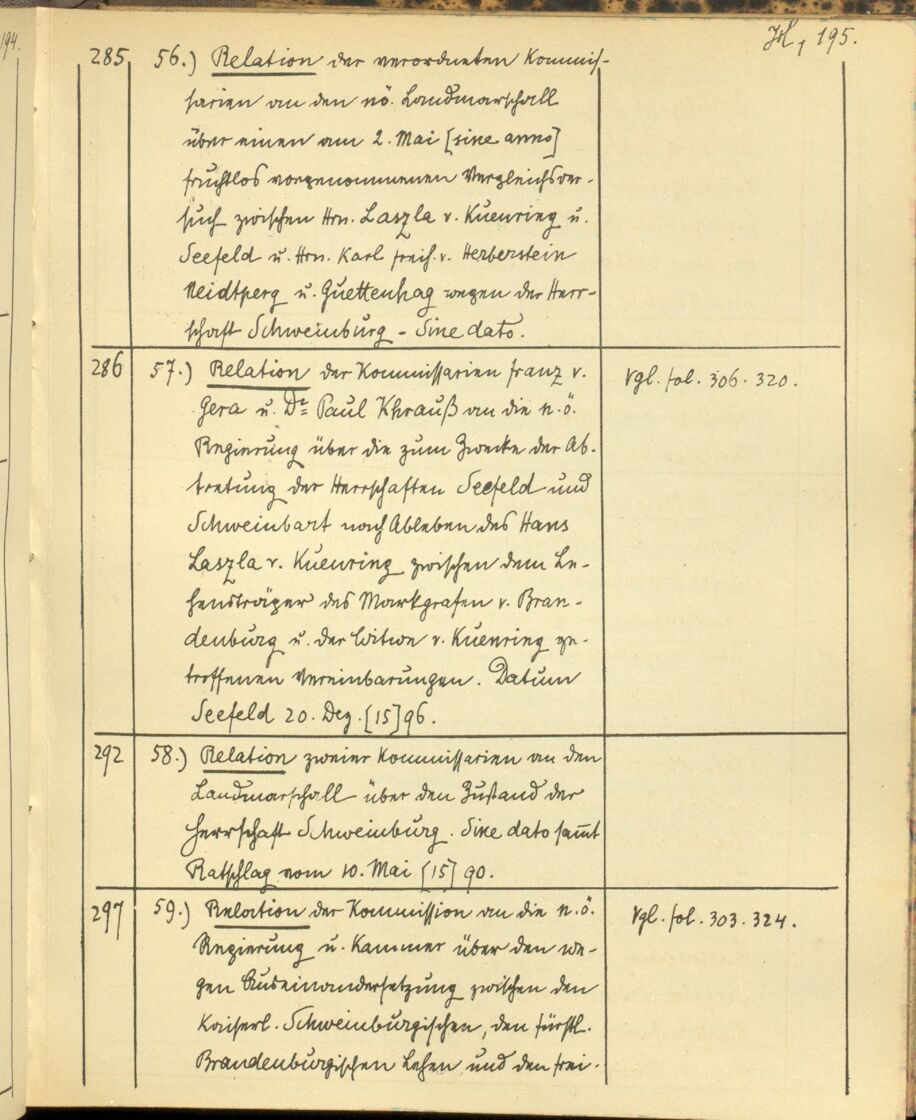 194.
195.
285 56.) Relation der verordneten Kommis-
sarien an den nö. Landmarschall
über einen am 2. Mai [sine anno]
fruchtlos vorgenommenen Vergleichsver-
such zwischen Hrn. Laszla v. Kuenring u.
Seefeld u. Hrn. Karl Freih. v. Herberstein
Neidtperg u. Guettenhag wegen der Herr-
schaft Schweinburg - Sine dato.
286 57.) Relation der Kommissarien Franz v. Vgl. fol. 306. 320.
Gera u. Dr Paul Khrauß an die n.ö.
Regierung über die zum Zwecke der Ab-
tretung der Herrschaften Seefeld und
Schweinbart nach Ableben des Hans
Laszla v. Kuenring zwischen dem Le-
hensträger des Markgrafen v. Bran-
denburg u. der Witwe v. Kuenring ge-
troffenen Vereinbarungen. Datum
Seefeld 20. Dez. [15]96.
292 58.) Relation zweier Kommissarien an den
Landmarschall über den Zustand der
Herrschaft Schweinburg. Sine dato sam̅t
Ratschlag vom 10. Mai [15]90.
297 59.) Relation der Kommission an die n.ö. Vgl. fol. 303. 324.
Regierung u. Kammer über den we-
gen Auseinandersetzung zwischen den
Kaiserl. Schweinburgischen, den fürstl.
Brandenburgischen Lehen und den frei-